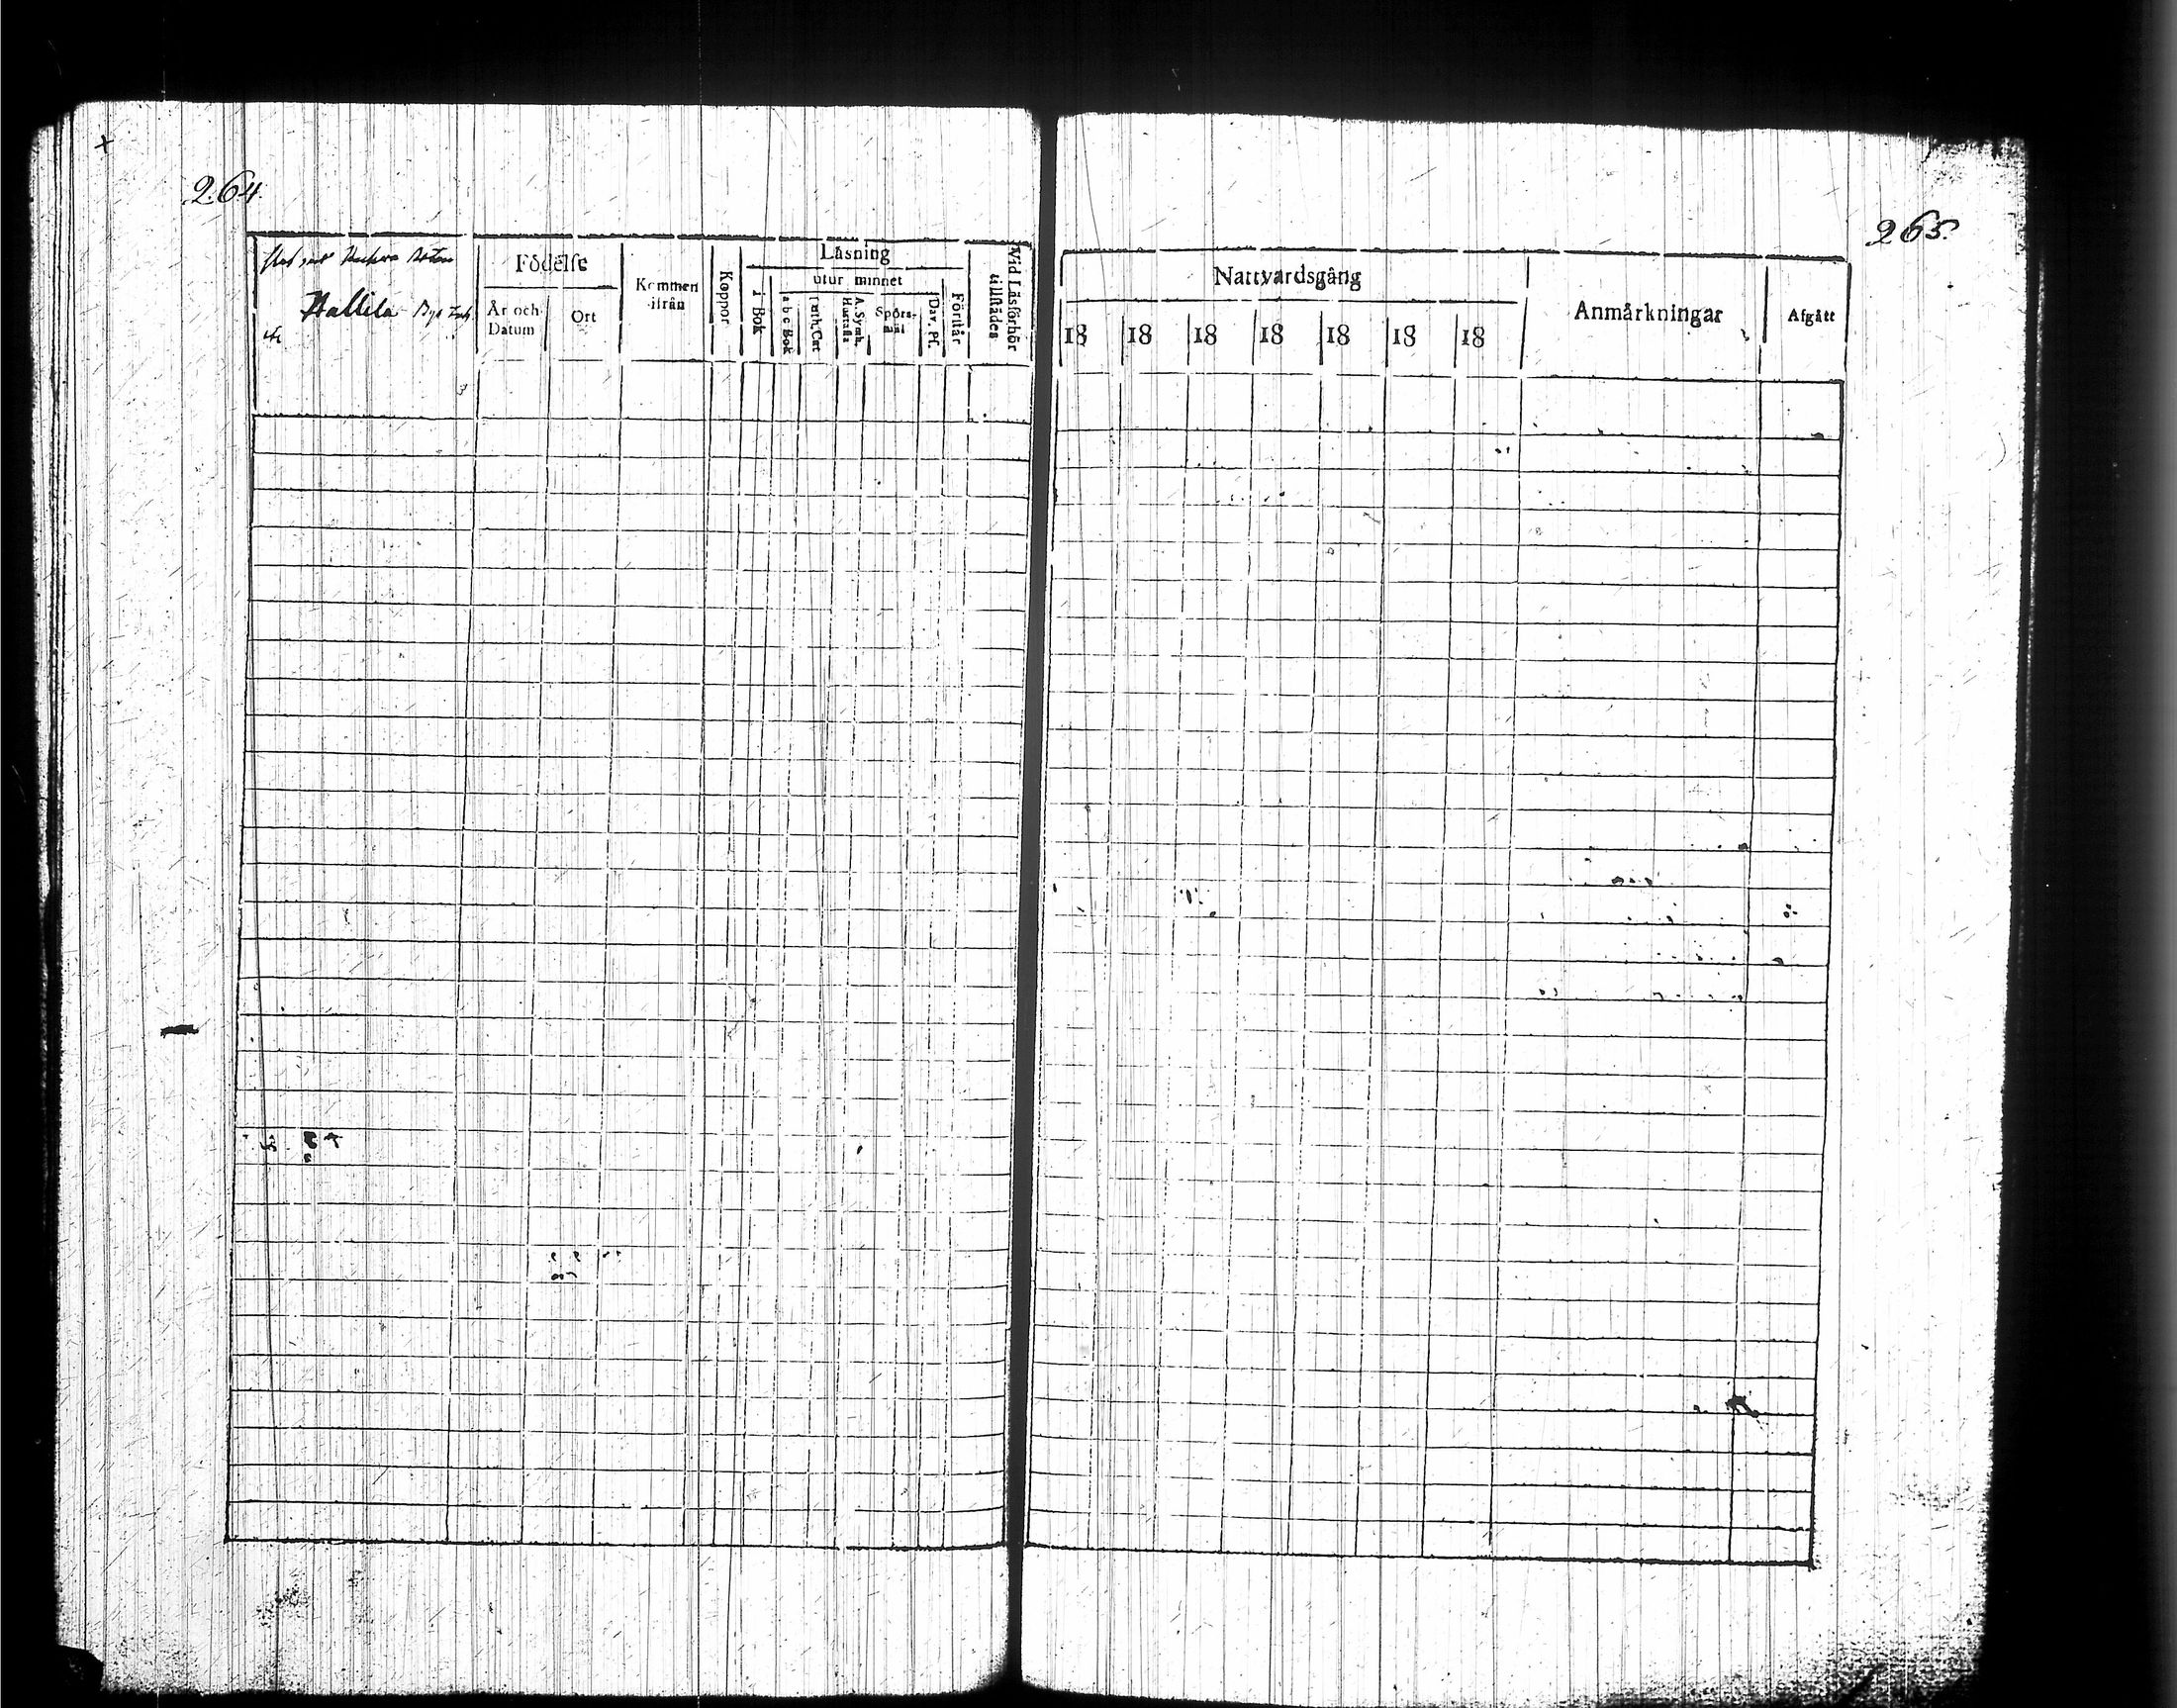 264.
Hallila
Födelse
År och Datum
Ort
Kommen ifrån
Koppor
Läsning
i Bok
utur minnet
a b c Bok
Luth. Cat
A. Symb.
Hustafla
Spörs-
mål
Dav. Ps.
Förstår
Vid Läsförhör
tillstädes
265.
Nattvardsgång
18 18 18 18 18 18 18
Anmärkningar
Afgått